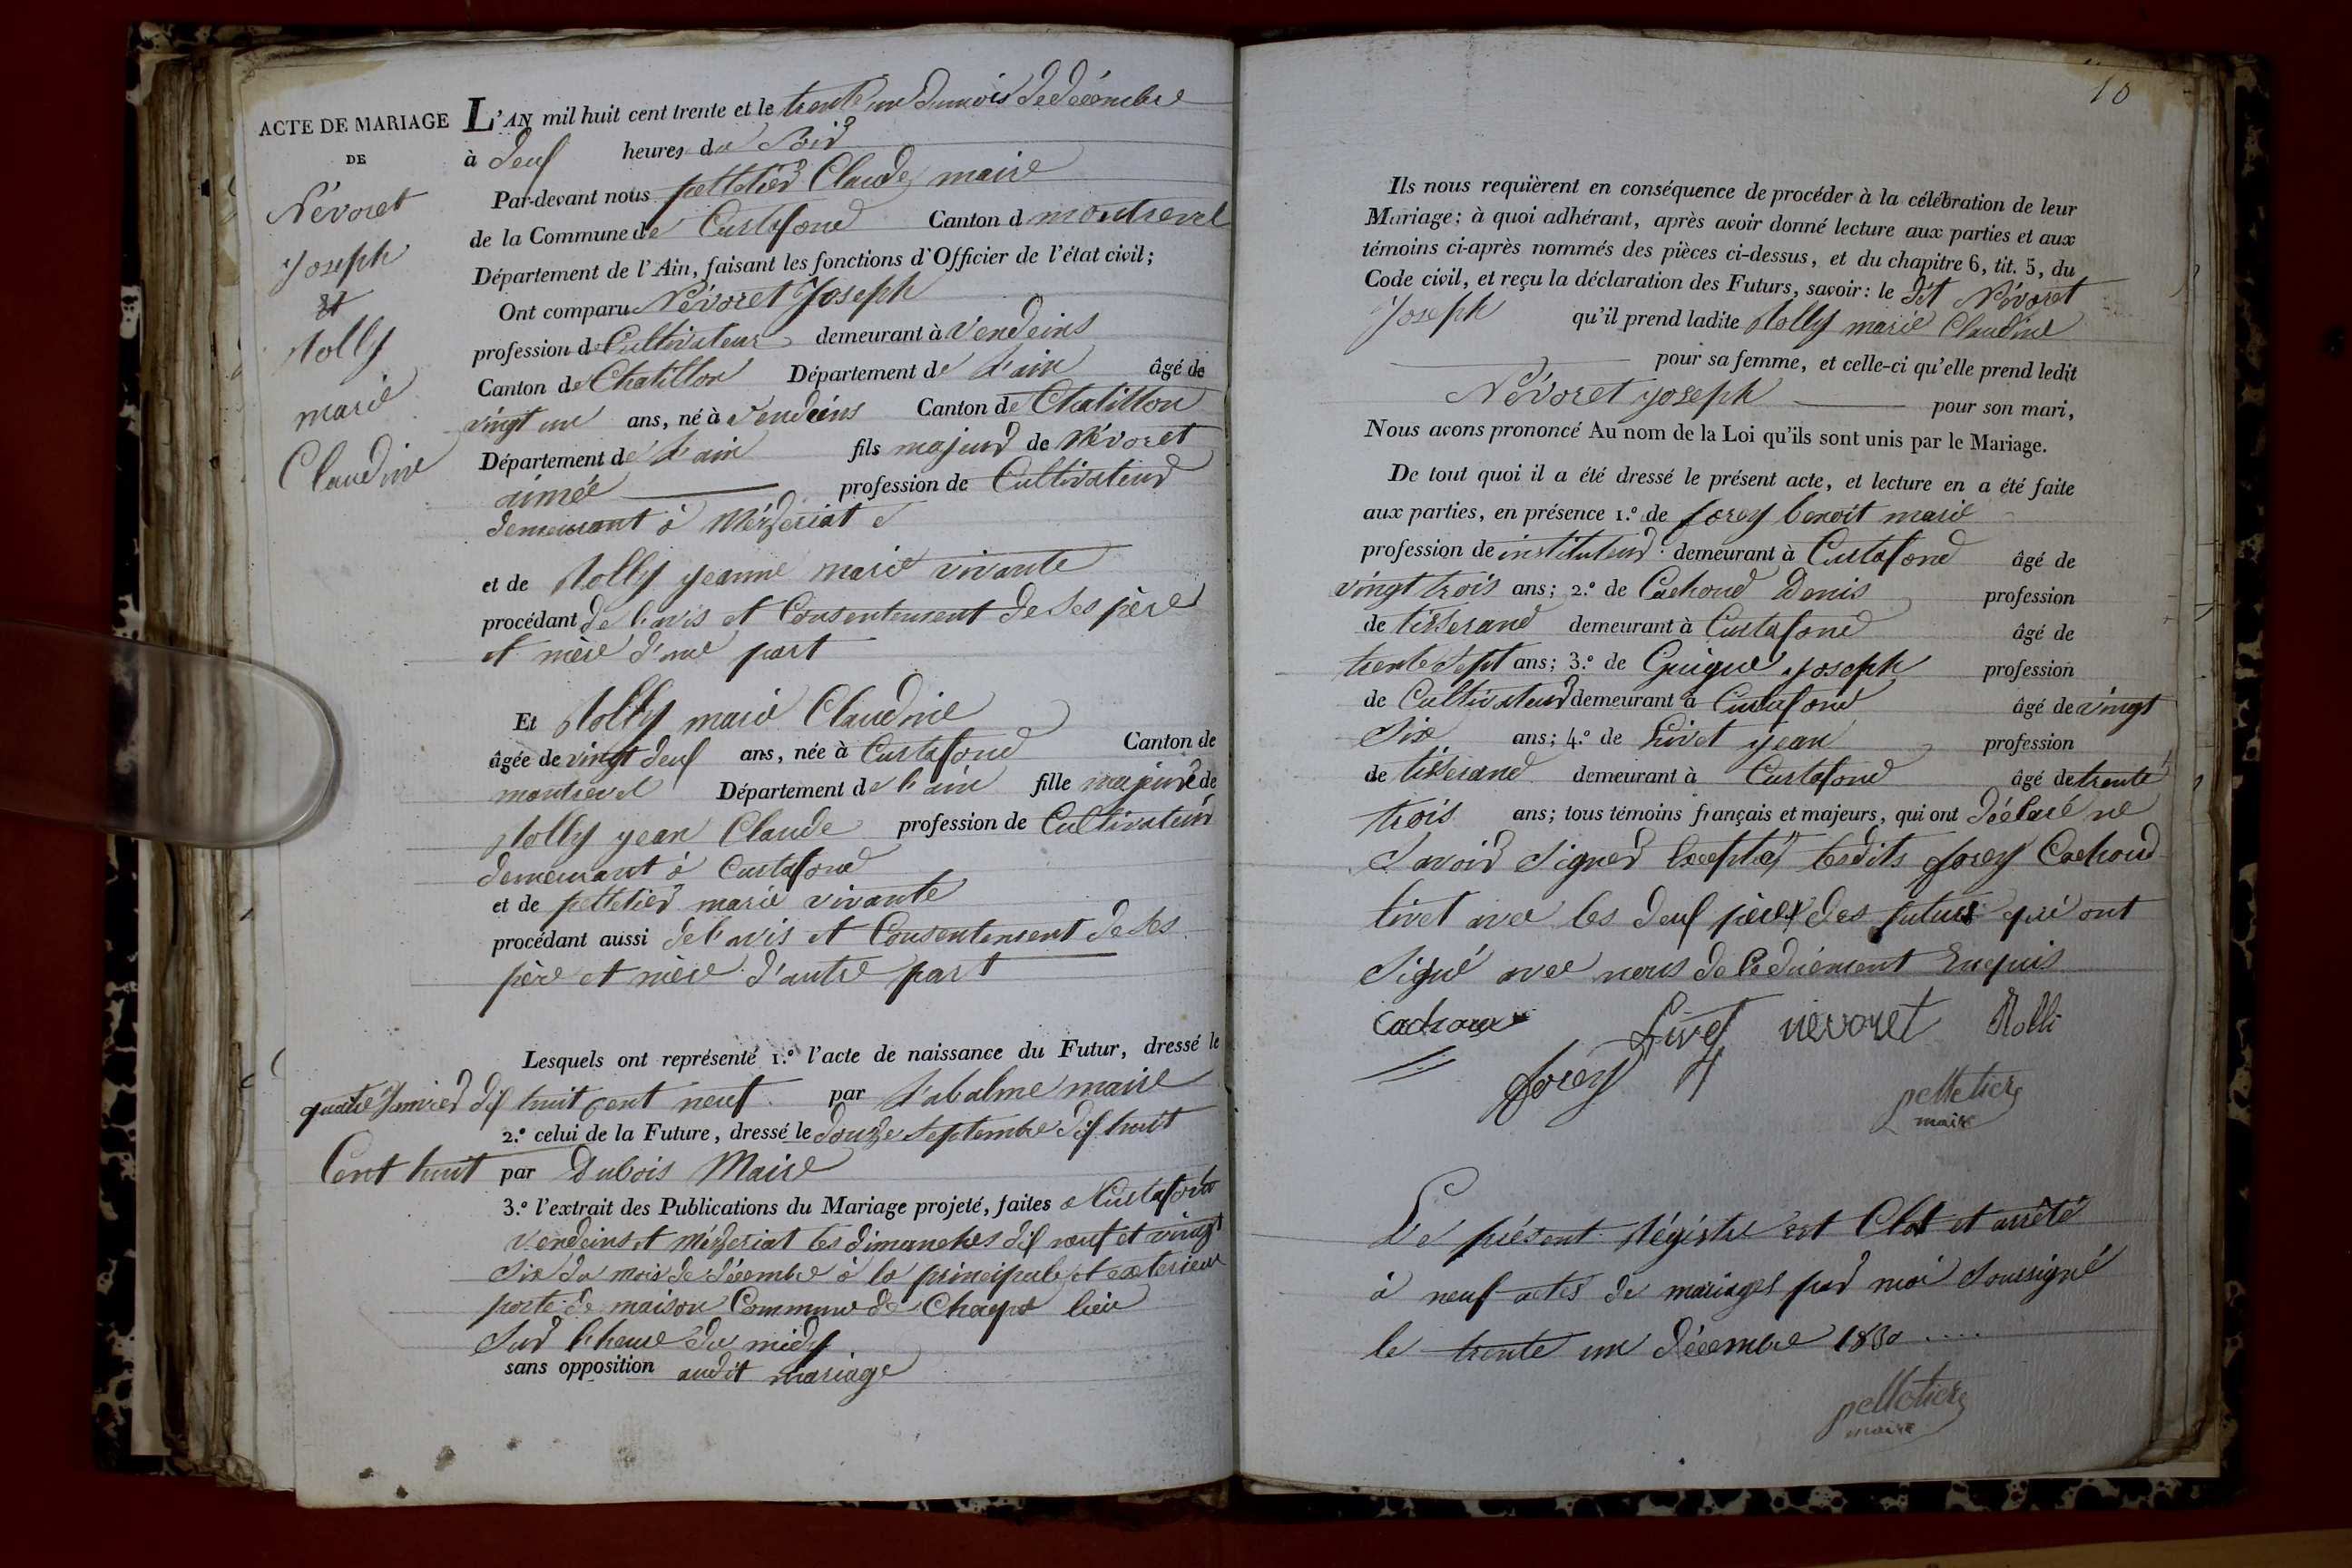 ACTE DE MARIAGE
DE
Névoret
Joseph
et
Rolly
marie
Claudine
L'AN mil huit cent trente et le trente un du mois de décembre
à deux heures du Soir
Par-devant nous pelletier Claude maire
de la Commune de Curtafond Canton d montrevel
Département de l'Ain, faisant les fonctions d'Officier de l'état civil;
Ont comparu Névoret Joseph
profession de Cultivateur demeurant à Vendeins
Canton de Chatillon Département de l'ain âgé de
vingt un ans, né à Vendeins Canton de Chatillon
Département de l'ain fils majeur de Névoret
aimée profession de Cultivateur
demeurant à Mézeriat et
et de Rolly jeanne marie vivante
procédant de l'avis et Consentement de ses père
et mère d'une part
Et Rolly marie Claudine
âgée de vingt deux ans, née à Curtafond Canton de
montrevel Département de l'ain fille majeure de
Rolly jean Claude profession de Cultivateur
demeurant à Curtafond
et de pelletier marie vivante
procédant aussi de l'avis et Consentement de ses
père et mère d'autre part
Lesquels ont représenté 1.º l'acte de naissance du Futur, dressé le
quatre Janvier dix huit cent neuf par Labalme maire
2.º celui de la Future, dressé le douze Septembre dix huit
Cent huit par Dubois Maire
3.º l'extrait des Publications du Mariage projeté, faites a Curtafond
Vendeins et Mézeriat les dimanches dix neuf et vingt
Six du mois de décembre à la principale et exterieur
porte de maison Commune de Chaque lieu
Sur l'heure de midy
sans opposition audit mariage
10
Ils nous requièrent en conséquence de procéder à la célébration de leur
Mariage; à quoi adhérant, après avoir donné lecture aux parties et aux
témoins ci-après nommés des pièces ci-dessus, et du chapitre 6, tit. 5, du
Code civil, et reçu la déclaration des Futurs, savoir: le dit Névoret
Joseph qu'il prend ladite Rolly marie Claudine
pour sa femme, et celle-ci qu'elle prend ledit
Névoret joseph pour son mari,
Nous avons prononcé Au nom de la Loi qu'ils sont unis par le Mariage.
De tout quoi il a été dressé le présent acte, et lecture en a été faite
aux parties, en présence 1.º de forey benoit marie
profession de instituteur demeurant à Curtafond âgé de
vingt trois ans; 2.º de Cachoud Denis profession
de tisserand demeurant à Curtafond âgé de
trente Sept ans; 3.º de Guigue joseph profession
de Cultivateur demeurant à Curtafond âgé de vingt
Six ans; 4.º de Livet jean profession
de tisserand demeurant à Curtafond âgé de trente
trois ans; tous témoins français et majeurs, qui ont déclaré ne
Savoir Signer Excepté lesdits forey Cachoud
livet avec les deux pères des futurs qui ont
Signé avec nous de ce duement Enquis
Cachoux Livet nevoret Rolli
forey
pelletier
maire
Le présent Régistre est Clot et arrêté
à neuf actes de mariages par moi Soussigné
le trente un décembre 1830 ....
pelletier
maire